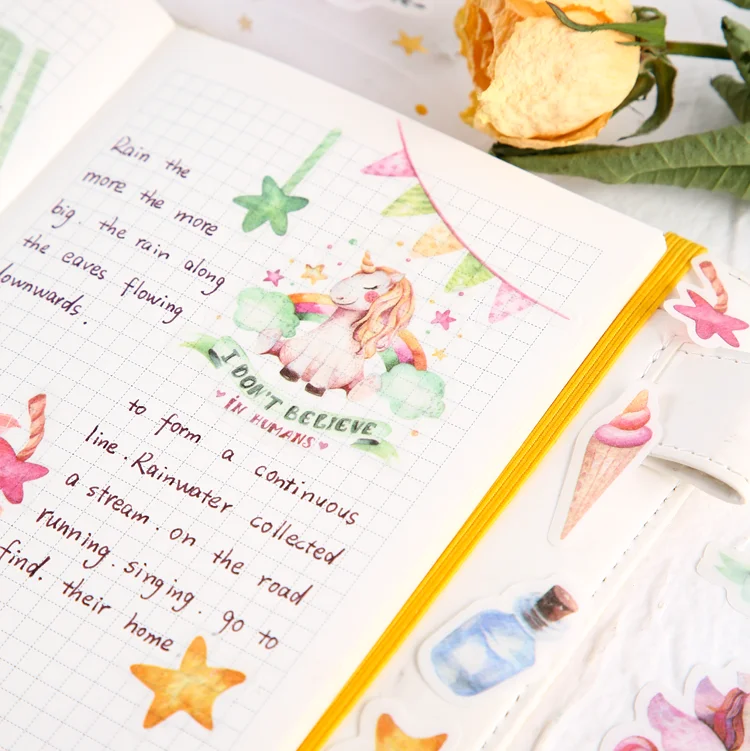 Rain the
more the more
big. the rain along
the eaves flowing
downwards.
I DON'T BELIEVE
IN HUMANS
to form a continuous
line. Rainwater collected
a stream. on the road
running. singing. go to
find. their home.